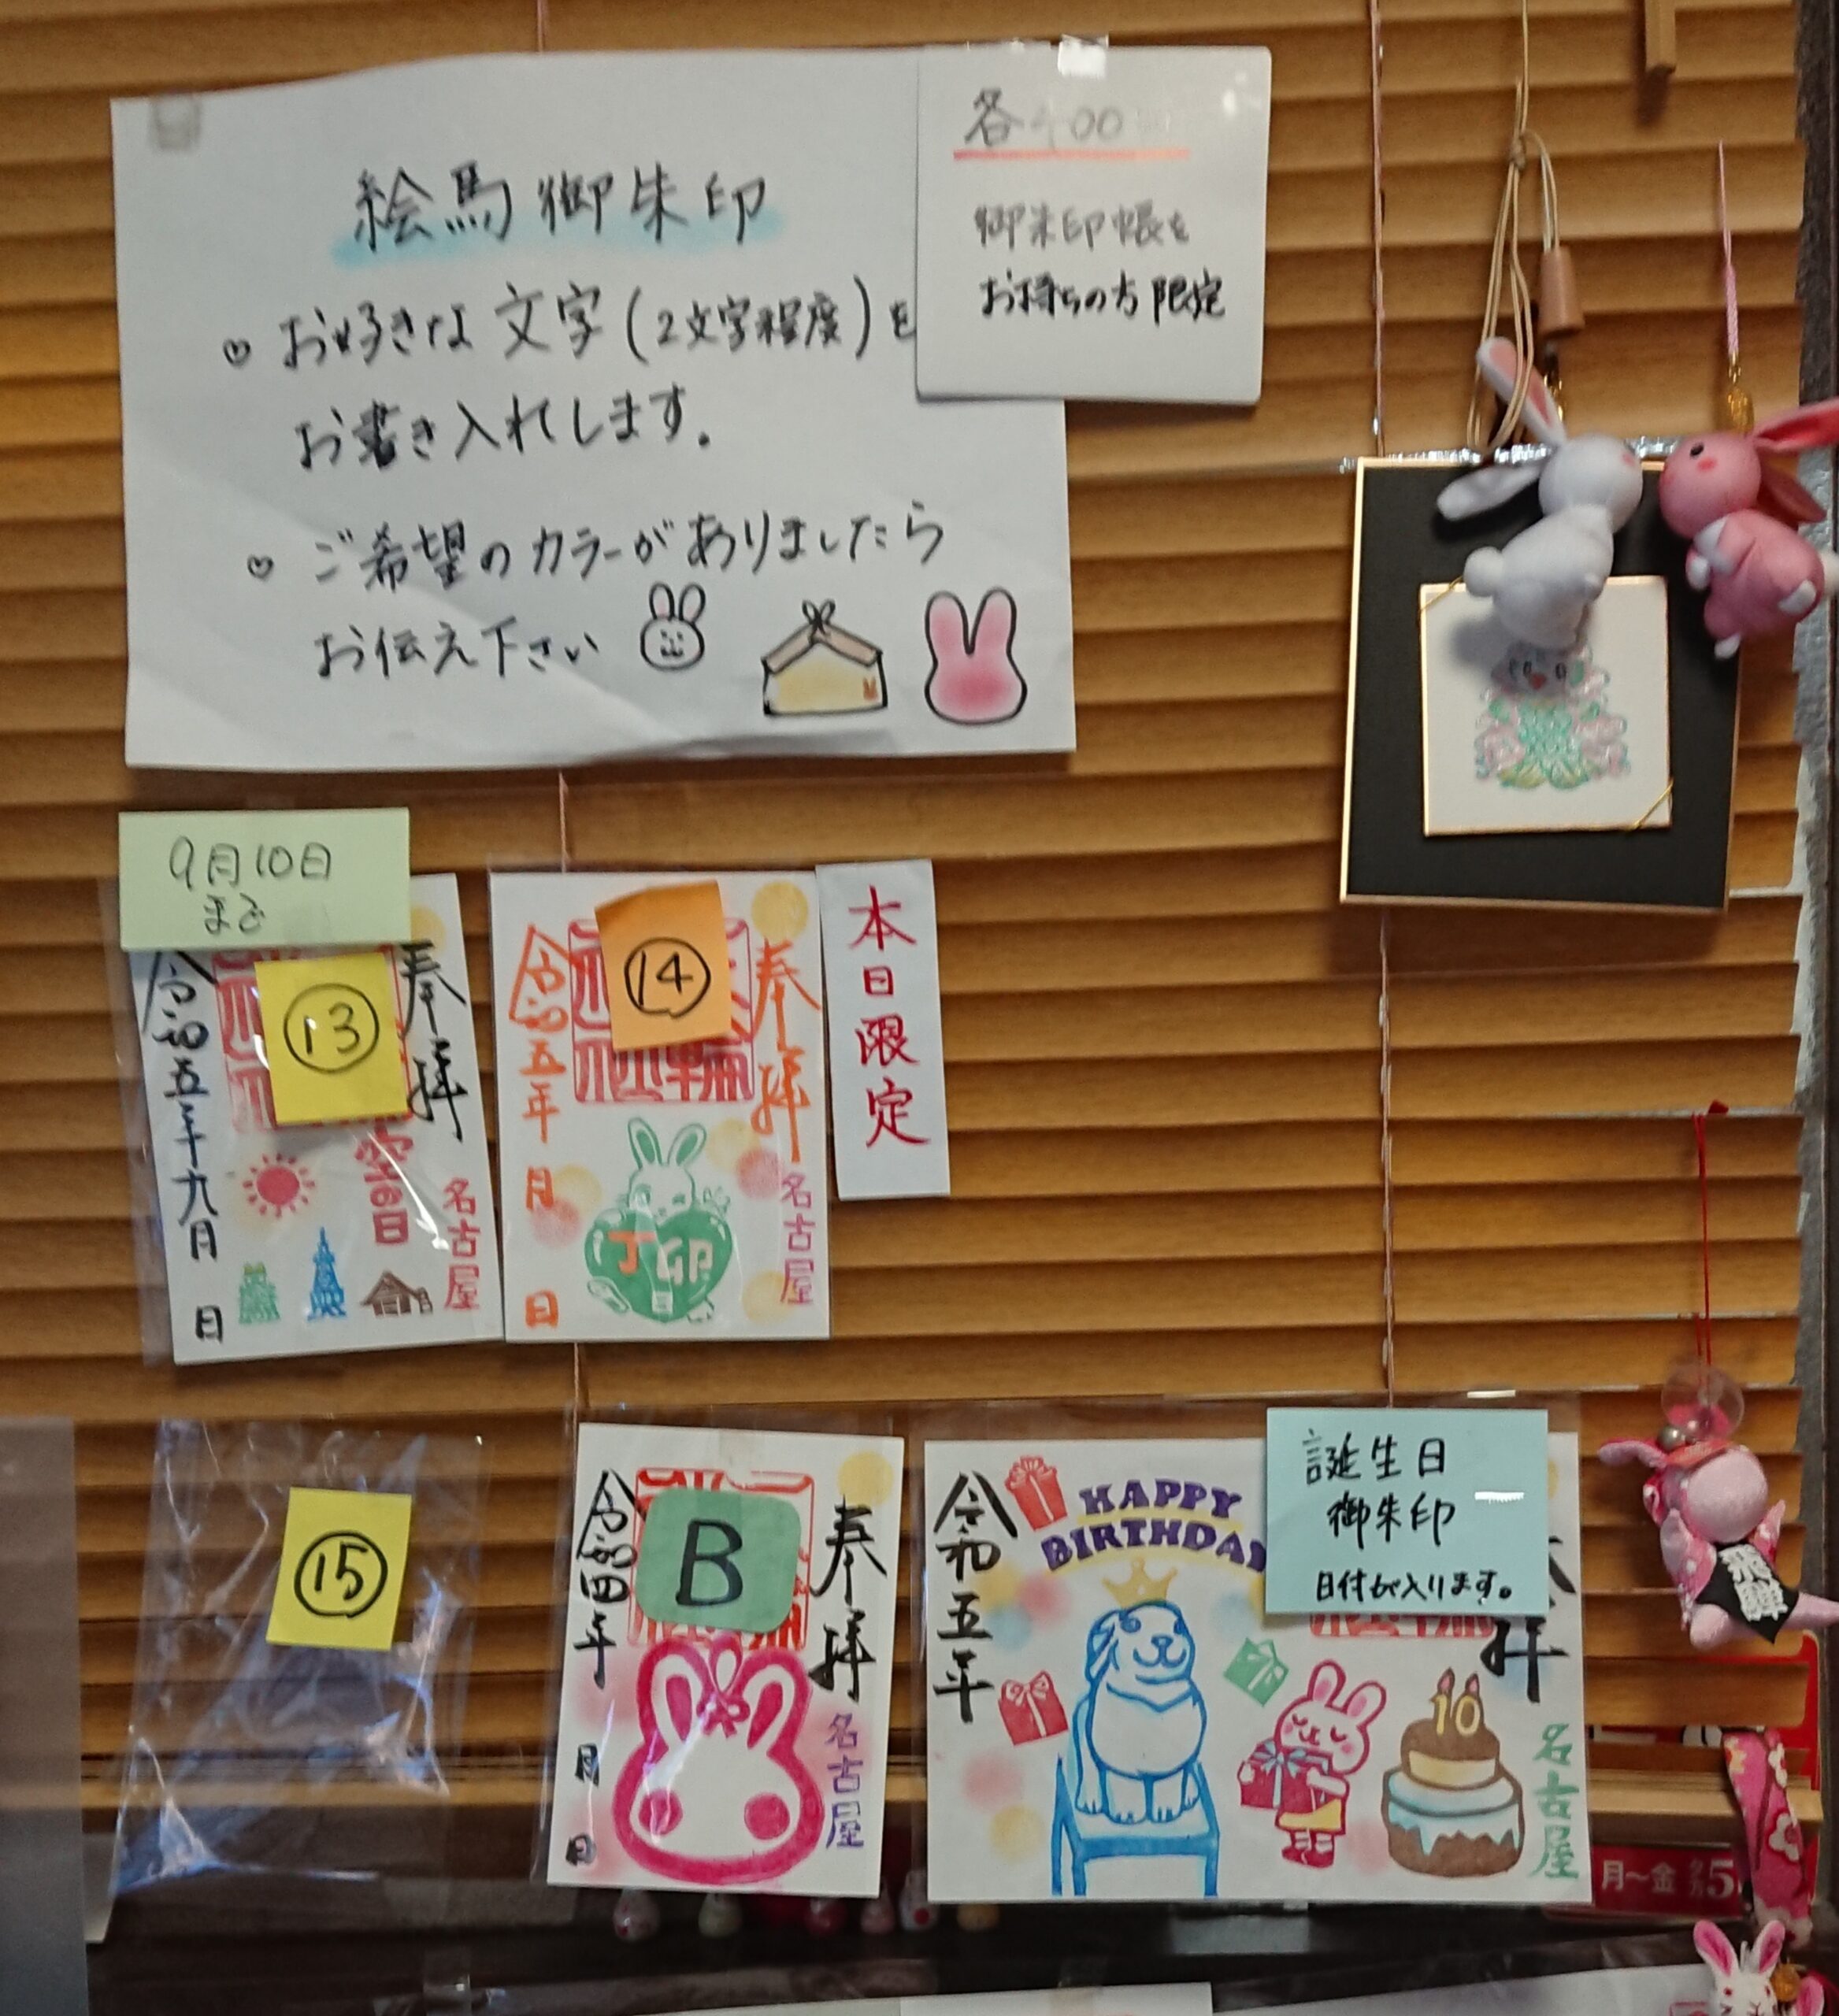 絵馬御朱印
お好きな文字(2文字程度)を
お書き入れします。
ご希望のカラーがありましたら
お伝え下さい
各400
御朱印帳を
お持ちの方限定
9月10日
まで
⑬
奉拝
名古屋
令和五年九月
日
⑭
奉拝
名古屋
丁卯
日
令和五年
月
日
本日限定
⑮
B
奉拝
名古屋
令和四年
月
日
誕生日
御朱印
日付が入ります。
HAPPY
BIRTHDAY
10
拝
名古屋
令和五年
飛騨
月〜金
5